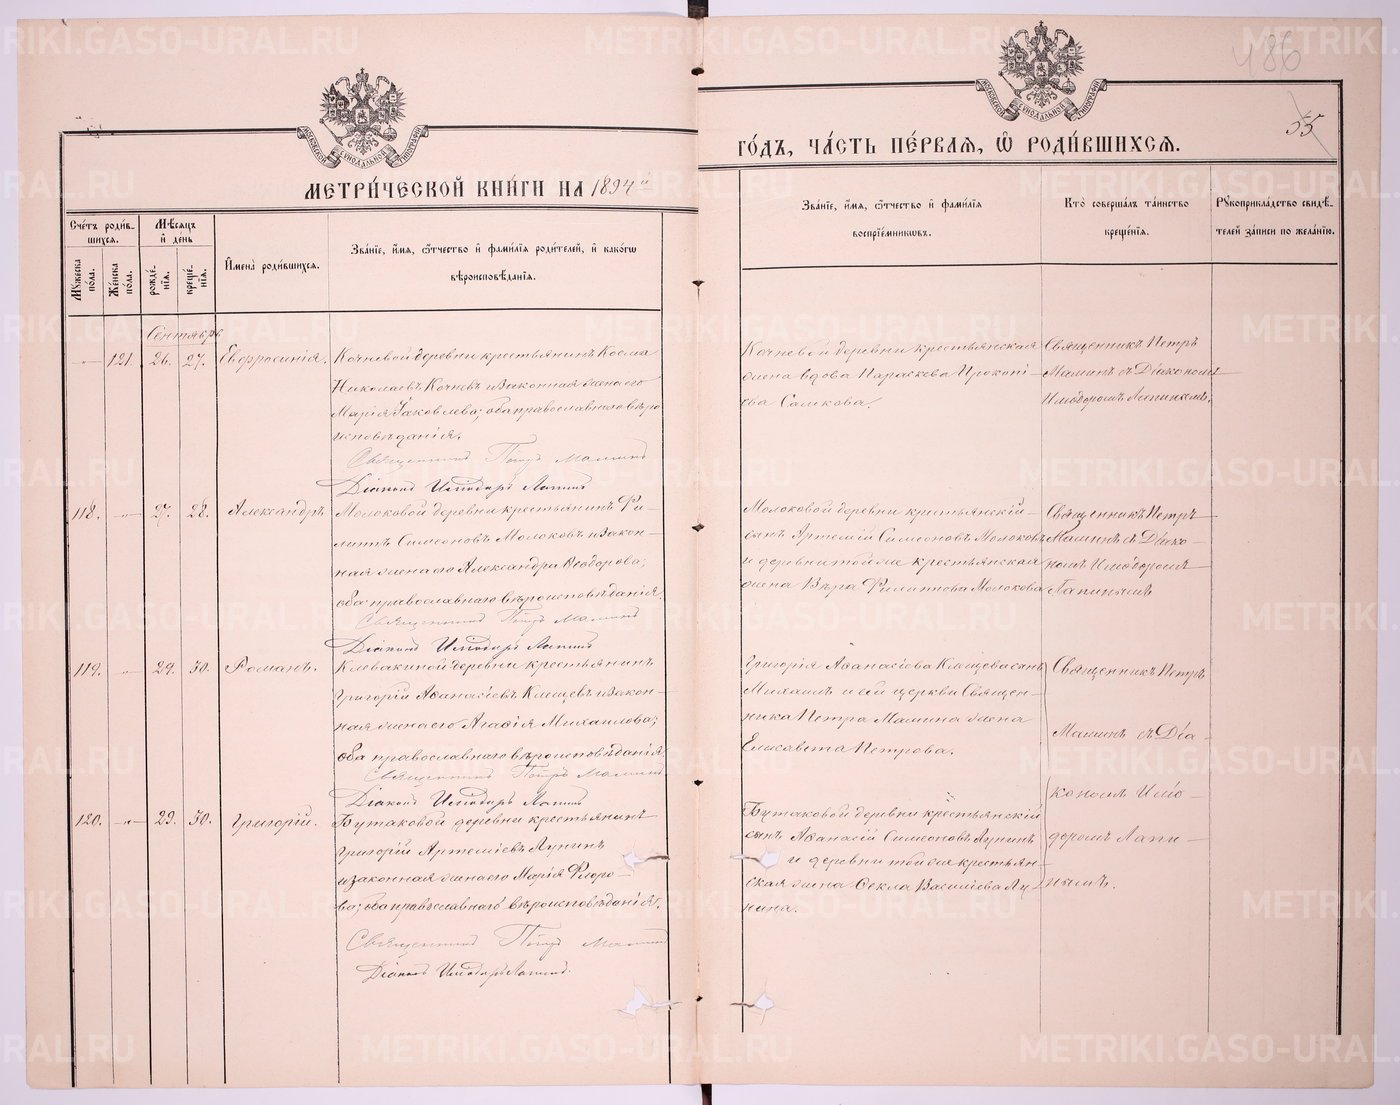 486
55
МЕТРИ́ЧЕСКОЙ КНИ́ГИ НА 1894й
ГО́ДЪ, ЧА́СТЬ ПЕ́РВАЯ, Ѡ҆ РОДИ́ВШИХСѦ.
Сче́тъ роди́в-
шихсѧ.
Мꙋ́жеска по́ла.
Же́нска по́ла.
Мѣ́сѧцъ
и҆ де́нь
рожде́-
нїѧ.
креще́-
нїѧ.
И҆мена̀ роди́вшихсѧ.
Зва́нїе, и҆́мѧ, ѻ҆́тчество и҆ фами́лїѧ роди́телей, и҆ како́гѡ
вѣроисповѣ́данїѧ.
Зва́нїе, и҆́мѧ, ѻ҆́тчество и҆ фами́лїѧ
воспрїе́мниковъ.
Кто̀ соверша́лъ та́инство
креще́нїѧ.
Рꙋкоприкла́дство свидѣ́-
телей за́писи по жела́нїю.
Сентябрь
" 121. 26. 27. Евфросинія.
Кочневой деревни крестьянинъ Косма
Николаевъ Кочневъ и законная жена его
Марія Іаковлева; оба православнаго вѣро
исповѣданія.
Священникъ Петръ Маминъ
Діаконъ Исидоръ Лапинъ
Кочневой деревни крестьянская
жена вдова Параскева Прокопі-
ева Сажкова.
Священникъ Петръ
Маминъ съ Діакономъ
Исидоромъ Лапинымъ;
118. " 27. 28. Александръ
Молоковой деревни крестьянинъ Фи-
липпъ Симеоновъ Молоковъ и закон-
ная жена его Александра Ѳеодорова;
оба православнаго вѣроисповѣданія.
Священникъ Петръ Маминъ
Діаконъ Исидоръ Лапинъ
Молоковой деревни крестьянскій
сынъ Артемій Симеоновъ Молоковъ
и деревни той же крестьянская
жена Вѣра Филиппова Молокова
Священникъ Петръ
Маминъ съ Діако-
номъ Исидоромъ
Лапинымъ
119. " 29. 30. Романъ.
Клевакиной деревни крестьянинъ
Григорій Аѳанасіевъ Клещевъ и закон-
ная жена его Агаѳія Михаилова;
оба православнаго вѣроисповѣданія
Священникъ Петръ Маминъ
Діаконъ Исидоръ Лапинъ
Григорія Аѳанасіова Клещева сынъ
Михаилъ и сей церкви Священ-
ника Петра Мамина жена
Елисавета Петрова.
Священникъ Петръ
Маминъ съ Діа-
кономъ Исио-
доромъ Лапи-
нымъ.
120. " 29. 30. Григорій.
Бутаковой деревни крестьянинъ
Григорій Артеміевъ Лунинъ
и законная жена его Марія Флоро-
ва; оба православнаго вѣроисповѣданія.
Священникъ Петръ Маминъ
Діаконъ Исидоръ Лапинъ.
Бутаковой деревни крестьянскій
сынъ Аѳанасій Симеоновъ Лунинъ
и деревни той же крестьян-
ская жена Ѳекла Василіева Лу-
нина.